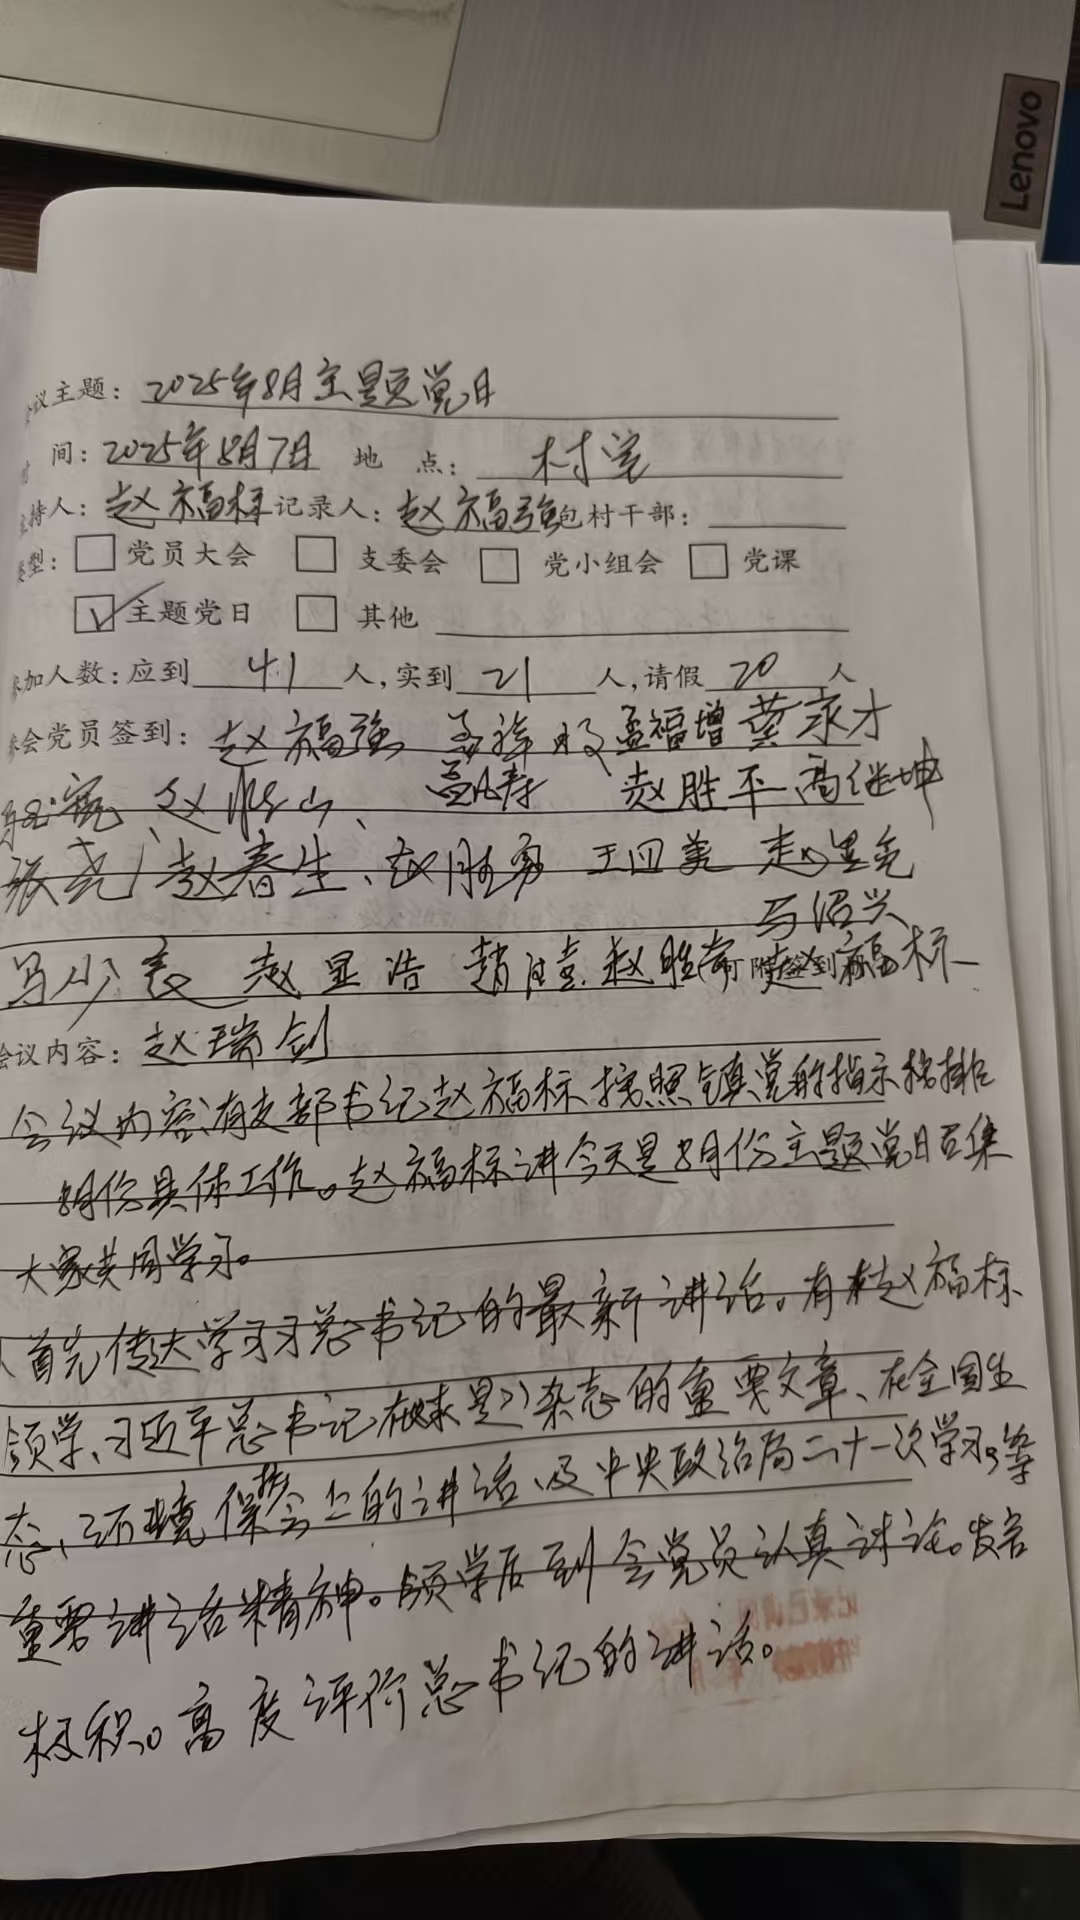 Lenovo
议主题：2025年8月主题党日
间：2025年8月7日 地 点：村室
持人：赵福标 记录人：赵福强 包村干部：
型：□党员大会 □支委会 □党小组会 □党课
☑主题党日 □其他
加人数：应到 41 人，实到 21 人，请假 20 人
会党员签到：赵福强 孟福增 龚家才
赵 山、 孟凡寿 赵胜平 高继坤
张尧、赵春生、赵胜勇 王四美 赵
马绍兴
马少 赵显浩 赵胜常 可附签到 赵福标
会议内容：赵瑞剑
会议内容：有支部书记赵福标按照镇党的指示按排
8月份具体工作。赵福标讲今天是8月份主题党日召集
大家共同学习。
首先传达学习习总书记的最新讲话。有赵福标
领学、习近平总书记在求是》杂志的重要文章、在全国生
态、环境保护会上的讲话、及中央政治局二十一次学习。等
重要讲话精神。领学后到会党员认真讨论。发言
极积。高度评价总书记的讲话。